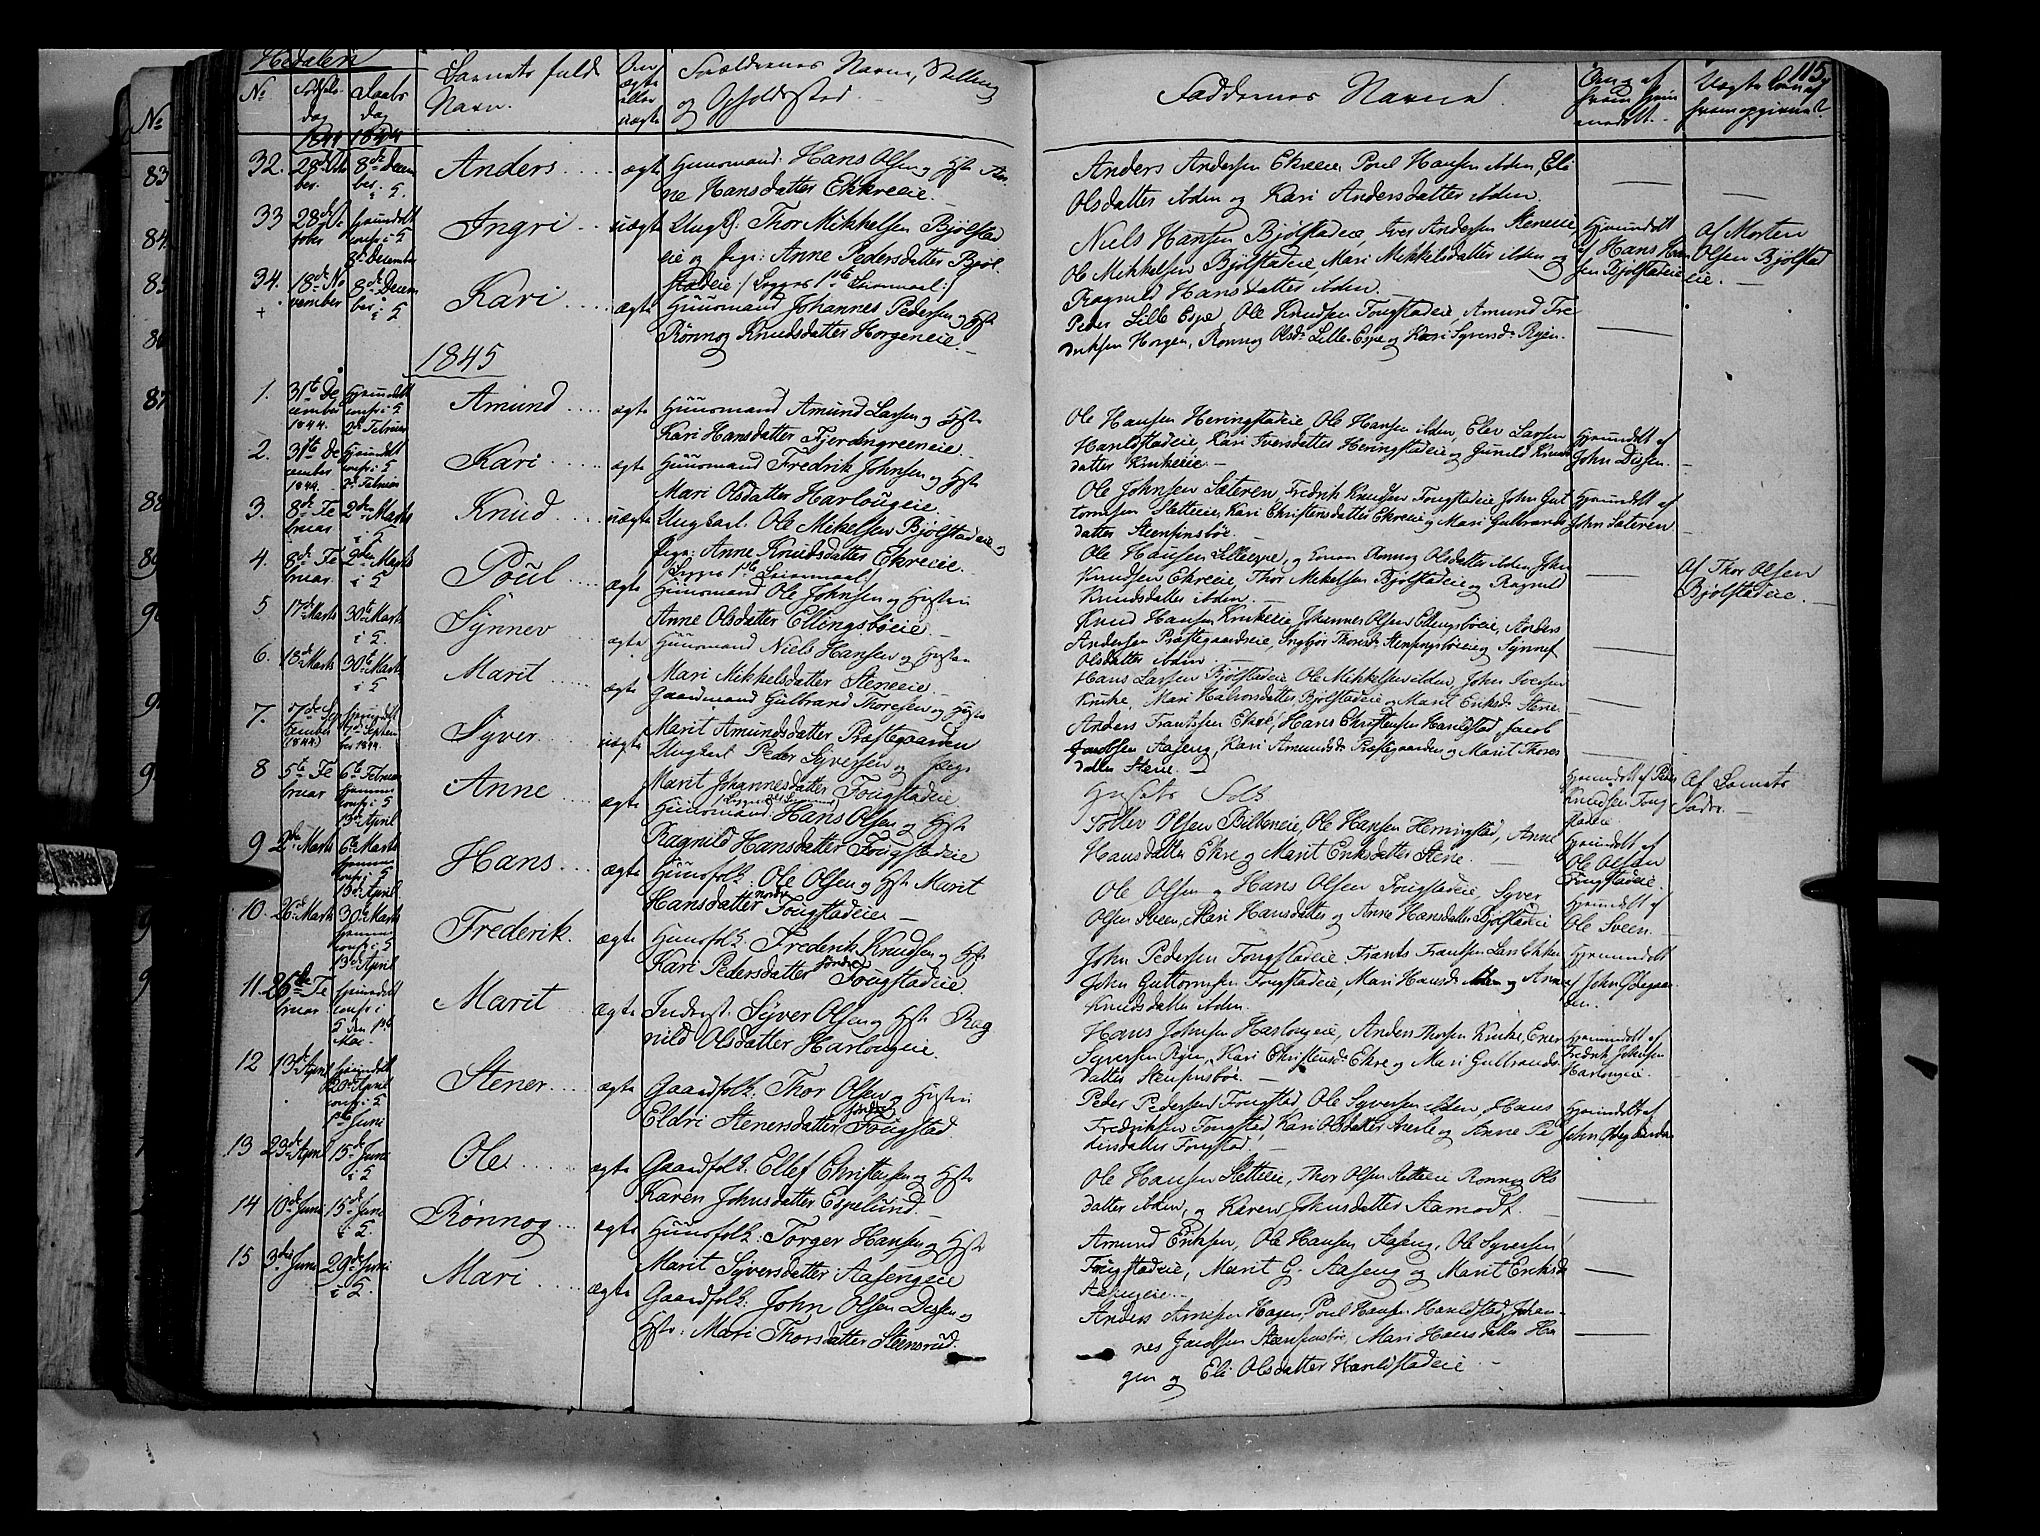 Hedalen
115.
No
Fødsels-
dag
Daabs
dag
Barnets fulde
Navn.
ægte
eller
uægte
Forældrenes Navne, Stilling
og Opholdssted.
Faddernes Navne.
Om og af
hvem hjem
medøbt.
Uægte Børn af
hvem opgivne?
1844 1844
32. 8de Decem
ber. i 5.
Anders
ægte
Huusmand: Hans Olsen og Hst
ne Hansdatter Ekkreie.
Anders Andersen Ekreie, Poul Hansen ibden, Eli
Olsdatter ibden og Kari Andersdatter ibden.
33 28de
tober
hjemdøbt
conf: i 5
8de December
Ingri
uægte
Ungk: Thor Mikkelsen Bjølstad
eie og Pige: Anne Pedersdatter Bjøl
stadeie /: Begges 1ste Leiermaal :/
Niels Hansen Bjølstadeie, Iver Andersen Steneeie
Ole Mikkelsen Bjølstadeie, Mari Mikkelsdatter ibden og
Ragnild Hansdatter ibden.
Hjemdøbt
af Hans Han
sen Bjølstadeie
Af Morten
Olsen Bjølstad
eie.
34. 18de No
vember
8de Decem
ber i 5
Kari
ægte
Huusmand Johannes Pedersen og Hst
Rønnog Knudsdatter Horgeneie.
Peder Lille Espe, Ole Knudsen Fougstadeie, Amund Fre
driksen Horgen, Rønnog Olsd: Lille Espe og Kari Syversd: Ryen.
1845
1. 31te De
cember
1844.
Hjemdøbt
conf: i 5
2de Februar
Amund
ægte
Huusmand Amund Larsen og Hst
Kari Hansdatter Tjerdngreeneie.
Ole Hansen Heringstadeie, Ole Hansen ibden, Elev Larsen
Haraldstadeie, Kari Iversdatter Heringstadeie og Gunild Knuds
datter Krukeie.
Hjemdøbt af
John Dissen.
2. 31te De
cember
1844
Hjemdøbt
conf: i 5
2de Februar
Kari
ægte
Huusmand Fredrik Johnsen og Hst
Mari Olsdatter Harlougeie.
Ole Johnsen Sæteren, Fredrik Knudsen Fougstadeie, John Gut
tormsen Sletteie, Kari Christensdatter Ekreie og Mari Gulbrands
datter Steenspinsbøe.
Hjemdøbt af
John Sæteren
3. 8de Fe
bruar
2den Marts
i 5
Knud
uægte
Ungkarl Ole Mikkelsen Bjølstadeie og
Pige: Anne Knudsdatter Ekreeie.
/: Begges 1ste Leiermaal :/
Ole Hansen Lilleespe, og Konen Rønnog Olsdatter ibden, John
Knudsen Ekreie, Thor Mikkelsen Bjølstadeie og Ragnild
Knudsdatter ibden.
Af Thor Olsen
Bjølstadeie.
4. 8de Fe
bruar
2den Marts
i 5
Poul
ægte
Huusmand Ole Johnsen og Hustru
Anne Olsdatter Ellingsbøeie.
Knud Hansen Krukeie, Johannes Olsen Ellingsbøeie, Anders
Andersen Præstegaardseie, Ingebør Thorsd: Stensingsbøeie og Synnef
Olsdatter ibden.
5 17de Marts
30te Marts
i 5
Synnev
ægte
Huusmand Niels Hansen og Hustru
Mari Mikkelsdatter Steneeie.
Hans Larsen Bjølstadeie, Ole Mikkelsen ibden, John Iversen
Kruke, Mari Halvorsdatter Bjølstadeie og Marit Eriksd: Stene.
6. 18de Marts
30te Marts
i 5
Marit
ægte
Gaardmand Gulbrand Thoresen og Hustru
Marit Amundsdatter Præstegaarden
Anders Frantssen Ekre, Hans Christensen Haraldstad, Jacob
Jacobsen Aaseng, Kari Amundsd: Præstegaarden og Marit Thores
datter Stene.
7. 7de Sep
tember
(1844)
hjemdøbt
Septem
ber 1844.
Syver
uægte
Ungkarl Peder Syversen og Pige
Marit Johannesdatter Fougstadeie
Hjemdøbt af Peder
Knudsen Foug
stadeie
Af Barnets
Fader.
8 5te Fe
bruar
6te Februar
hjemme
conf: i 5
13de April
Anne
ægte
Huusmand: Hans Olsen og Hst
Ragnild Hansdatter Fougstadeie
Tollev Olsen Bilbeneie, Ole Hansen Herringstad, Anne
Hansdatter Ekre og Marit Eriksdatter Stene.
Hjemdøbt af
Ole Olsen
Fougstadeie.
9 2den Marts
6te Marts
hjemme
conf: i 5
13de April
Hans
ægte
Huusfolk: Ole Olsen og Hst Marit
Hansdatter nordre Fougstadeie
Ole Olsen og Hans Olsen Fougstadeie, Syver
Olsen Steen, Mari Hansdatter og Anne Hansdatter Bjølstadeie
Hjemdøbt af
Ole Sveen.
10. 26de Marts
30te Marts
hjemme
conf: i 5
13de April
Frederik.
ægte
Huusfolk: Frederik Knudsen og Hst
Kari Pedersdatter søndre Fougstadeie.
John Pedersen Fougstadeie, Frants Frantsen Lars Ekker
John Guttormsen Fougstadeie, Mari Hansd: ibden og Anne
Knudsdatter ibden.
Hjemmdøbt
af John Ødegaar
den.
11. 26de Fe
bruar
hjemdøbt
conf: i
5 den 1ste
Mai.
Marit
ægte
Inderst: Syver Olsen og Hst Rag
nild Olsdatter Harlougeie.
Hans Johnsen Harlougeie, Anders Thorsen Kruke, Ener
Syversen Ryen, Kari Christensd: Ekre og Mari Gulbrands
datter Stenspinsbøe.
Hjemmdøbt af
Fredrik Johnsen
Harlougeie.
12 13de April
hjemdøbt
20de April
conf: i 5
1ste Juni
Stener
ægte
Gaardfolk: Thor Olsen og Hustru
Eldri Stenersdatter søndre Fougstad.
Peder Pedersen Fougstad, Ole Syversen ibden, Hans
Fredriksen Fougstad, Kari Olsdatter Aaerle og Anne Pe
dersdatter Fougstad.
Hjemdøbt af
John Ødegaarden
13 23de April
15de Juni
i 5
Ole
ægte
Gaardfolk: Ellef Christensen og Hst
Karen Johnsdatter Espelund.
Ole Hansen Sletteie, Thor Olsen Sletteie, Rønnog Ols
datter ibden, og Karen Johnsdatter Aamodt.
14 10de Juni
15de Juni
i 5.
Rønnog
ægte
Huusfolk: Torger Hansen og Hst
Marit Syversdatter Aasengeie
Amund Eriksen, Ole Hansen Aaseng, Ole Syversen
Fougstadeie, Marit G. Aaseng og Marit Eriksd:
Aasengeie.
15 3die Juni
29de Juni
i 5.
Mari
ægte
Gaardfolk: John Olsen Dissen og
Hst: Mari Thorsdatter Steensrud.
Anders Arnesen Hagen, Poul Hansen Haraldstad, Johan-
nes Jacobsen Stenspinsbøe, Mari Hansdatter Ha
gen og Eli Olsdatter Haraldstadeie